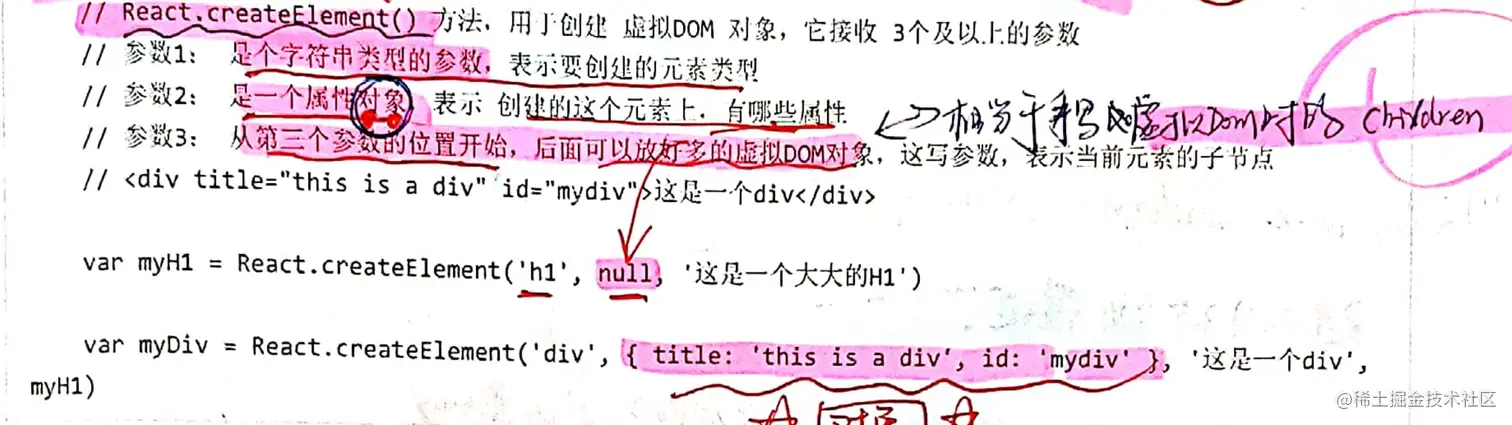 // React.createElement() 方法, 用于创建 虚拟DOM 对象, 它接收 3个及以上的参数
// 参数1: 是个字符串类型的参数, 表示要创建的元素类型
// 参数2: 是一个属性对象, 表示 创建的这个元素上, 有哪些属性
相当于手写 虚拟Dom时的 children
// 参数3: 从第三个参数的位置开始, 后面可以放好多的虚拟DOM对象, 这写参数, 表示当前元素的子节点
// <div title="this is a div" id="mydiv">这是一个div</div>
var myH1 = React.createElement('h1', null, '这是一个大大的H1')
var myDiv = React.createElement('div', { title: 'this is a div', id: 'mydiv' }, '这是一个div',
myH1)
@稀土掘金技术社区